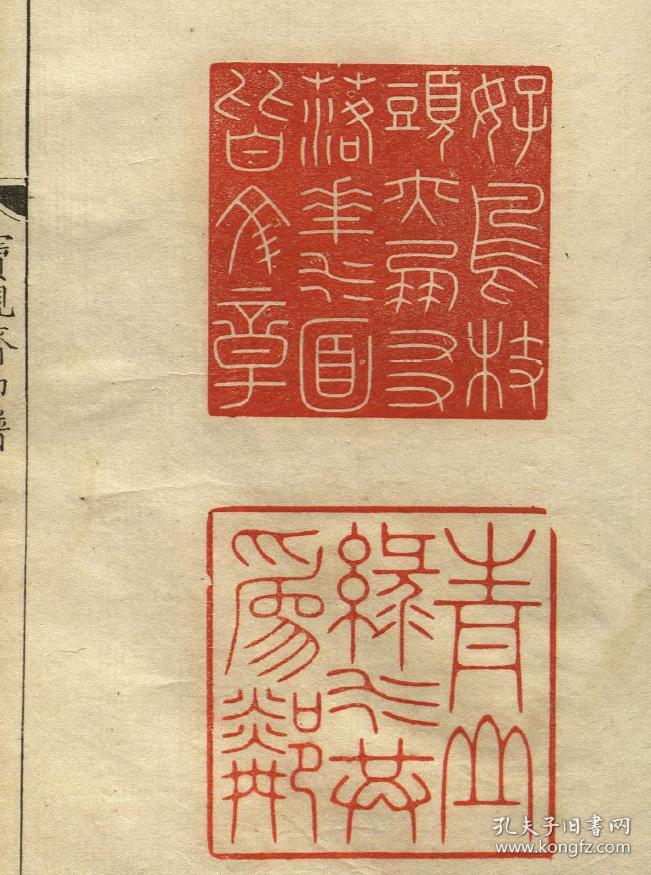 好鳥枝
頭亦朋友
落花水面
皆文章
青山
綠水共
爲鄰
寶齋印譜
孔夫子旧书网
www.kongfz.com